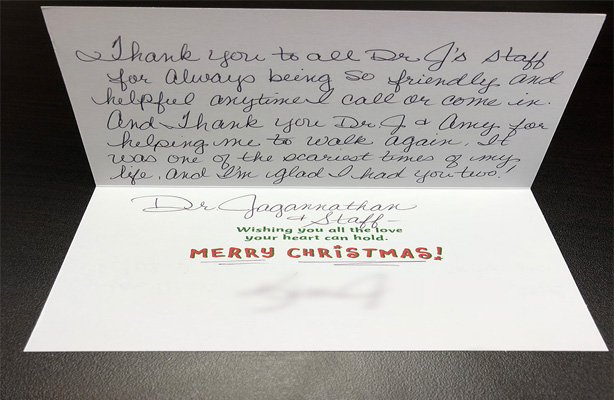 Thank you to all Dr J's staff
for always being so friendly and
helpful anytime I call or come in.
And Thank you Dr. J & Amy for
helping me to walk again. It
was one of the scariest times of my
life, and I'm glad I had you two!
Dr Jagannathan
& Staff -
Wishing you all the love
your heart can hold.
MERRY CHRISTMAS!